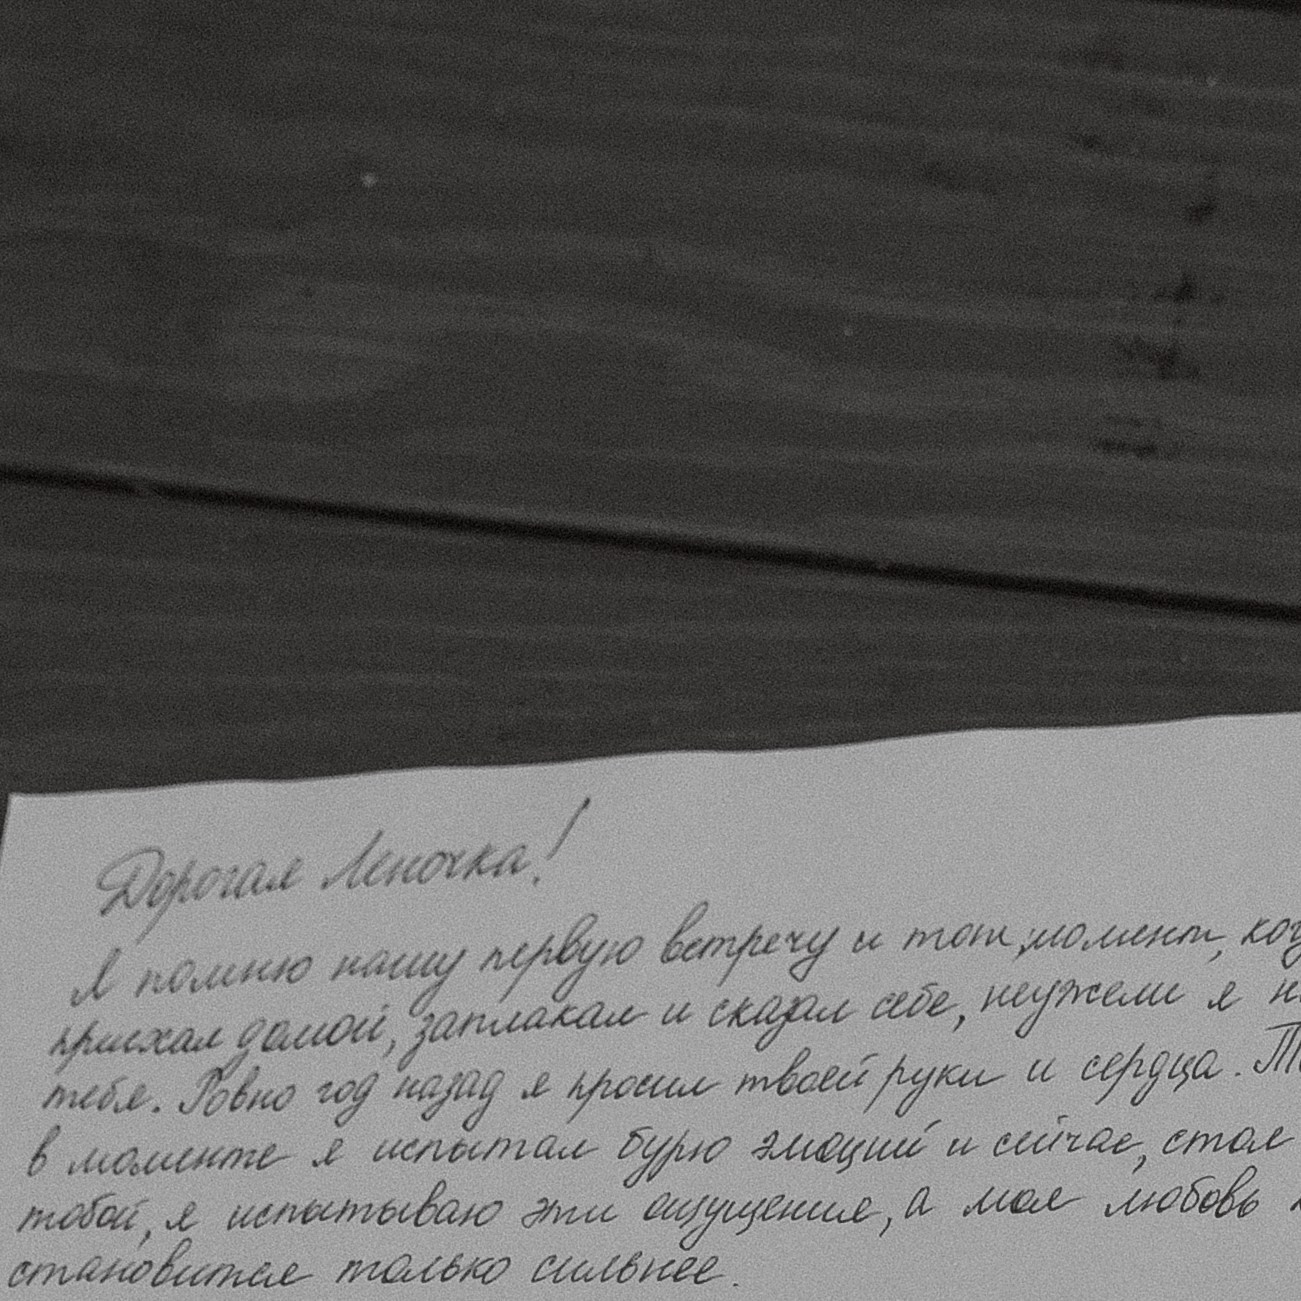 Дорогая Леночка!
Я помню нашу первую встречу и тот момент, ког
приехал домой, заплакал и сказал себе, неужели я н
тебя. Ровно год назад я просил твоей руки и сердца. Т
в моменте я испытал бурю эмоций и сейчас, стоя
тобой, я испытываю эти ощущения, а моя любовь
становится только сильнее.